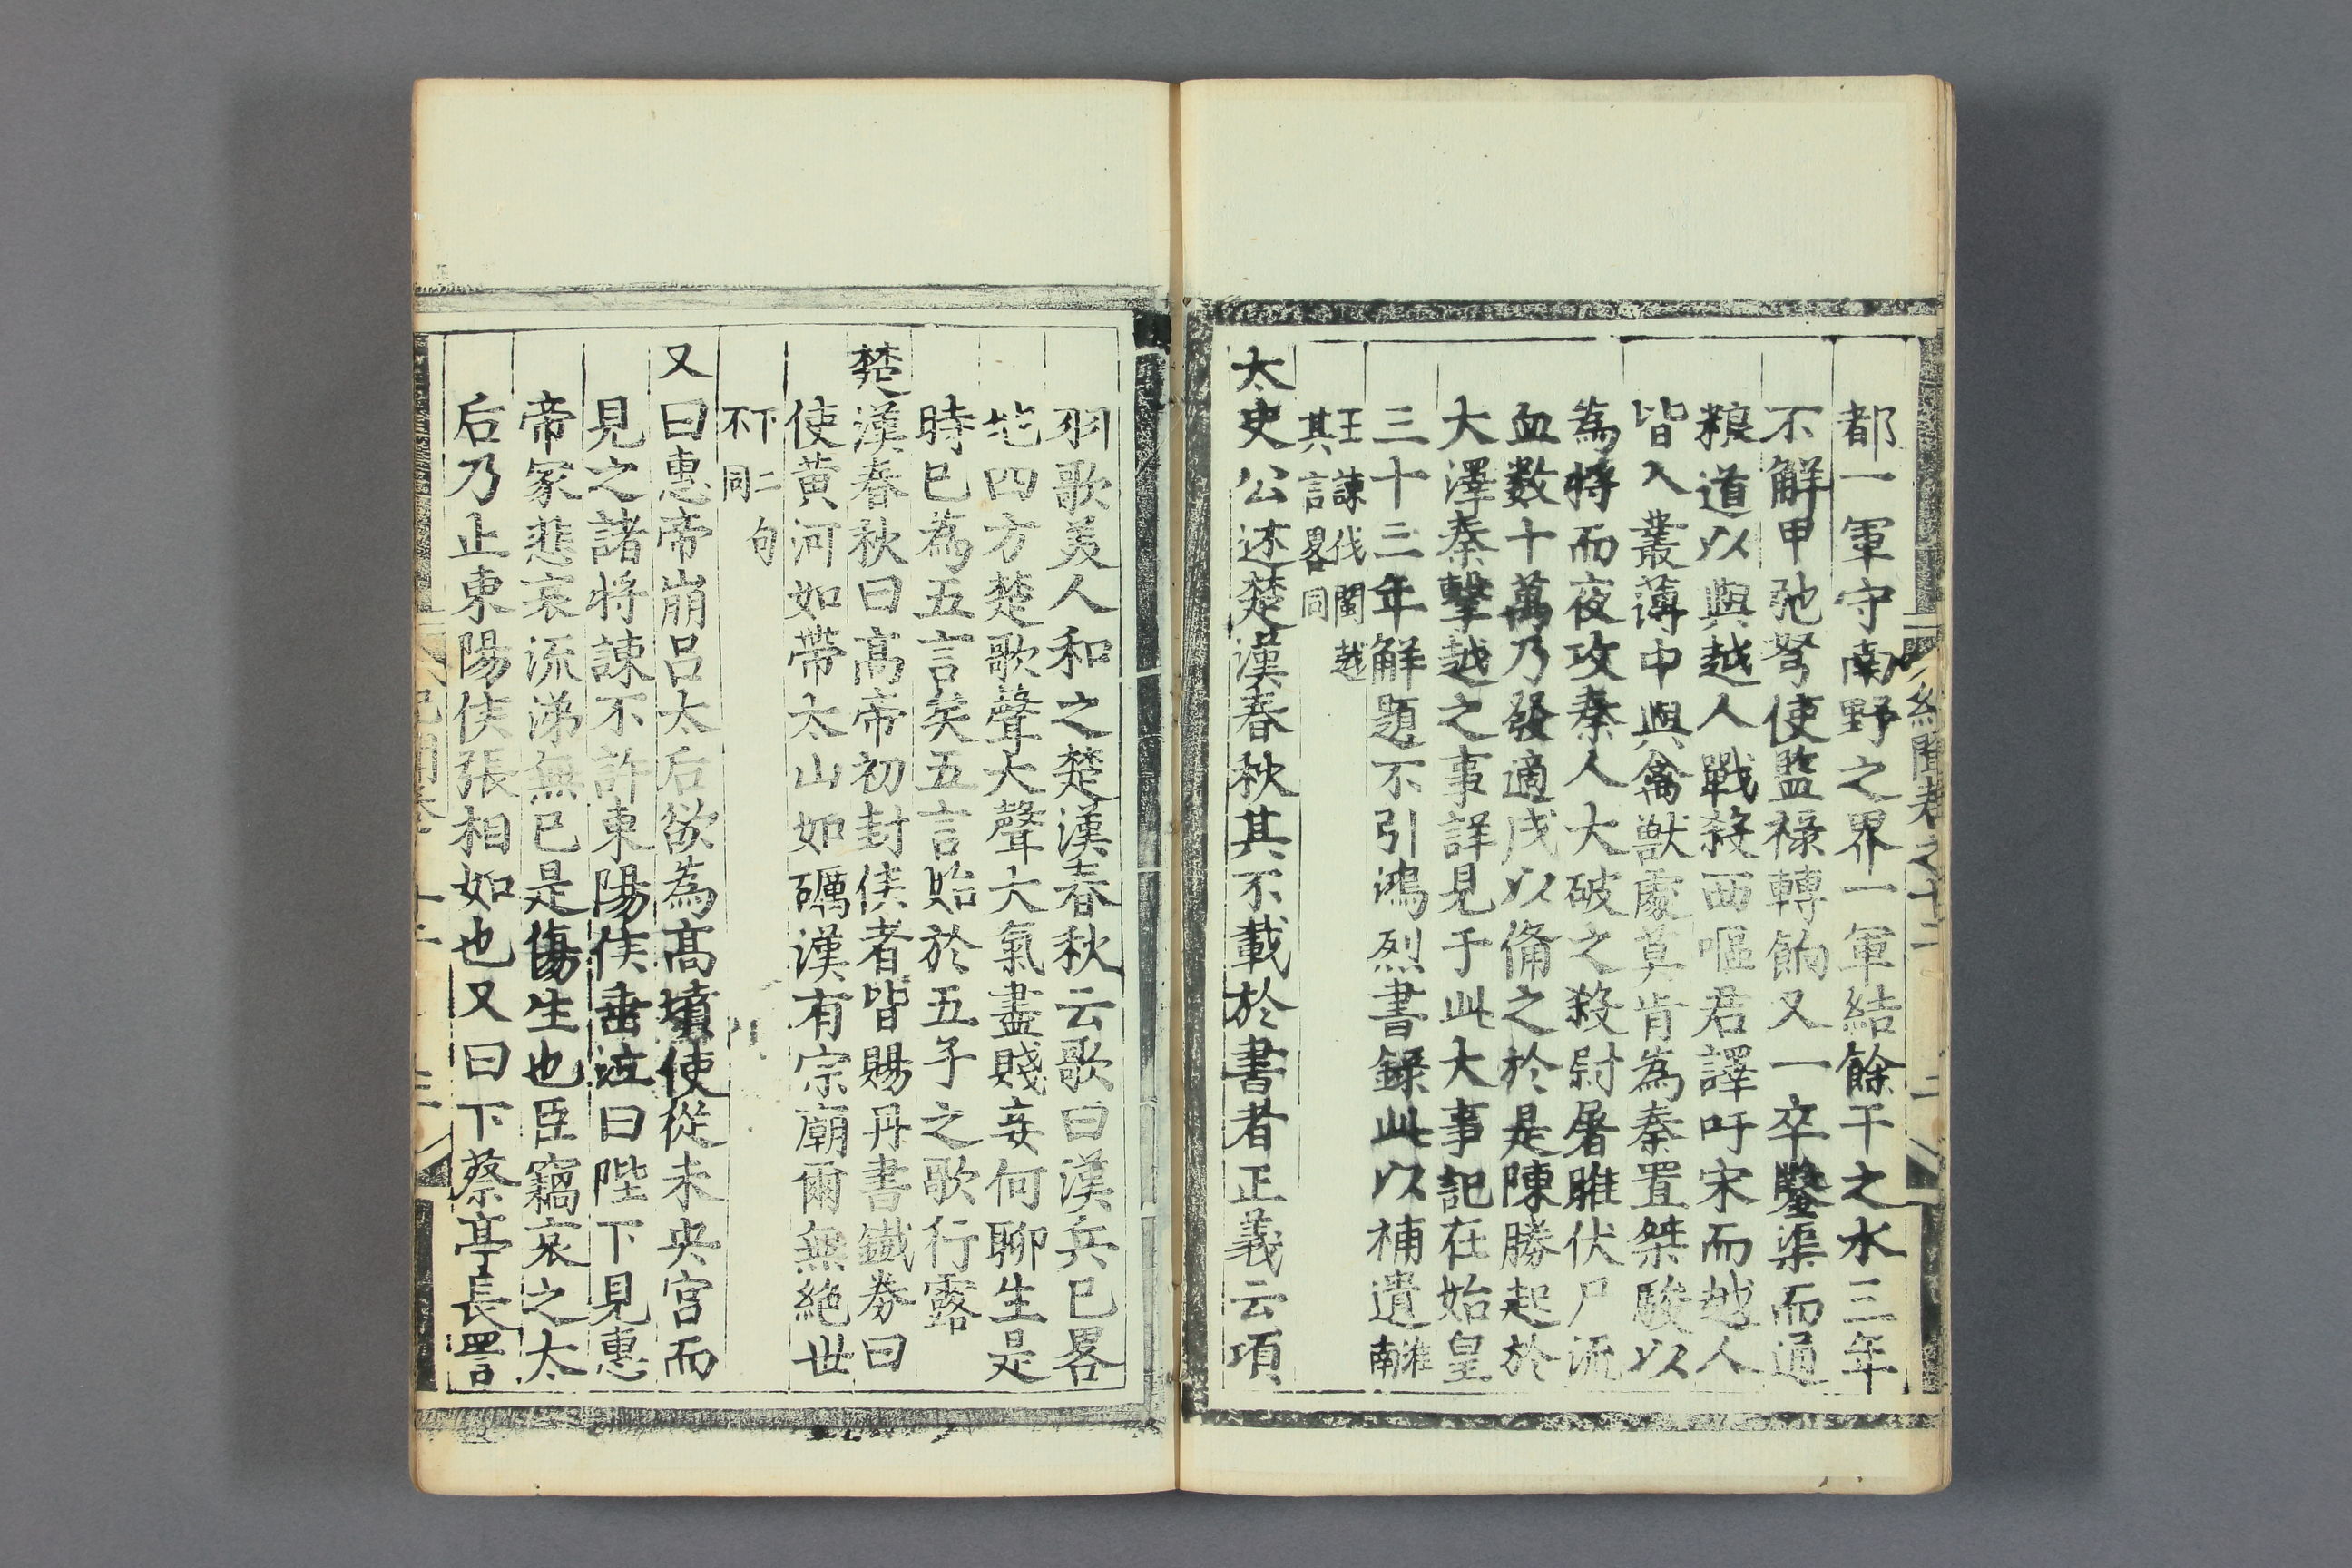 都一軍守南野之界一軍結餘干之水三年
不解甲弛弩使監祿轉餉又一卒鑿渠而通
糧道以與越人戰殺西嘔君譯吁宋而越人
皆入叢薄中與禽獸處莫肯為秦置桀駿以
為將而夜攻秦人大破之殺尉屠雎伏尸流
血数十萬乃發適戍以俻之於是陳勝起於
大澤秦擊越之事詳見于此大事記在始皇
三十三年解題不引鴻烈書錄此以補遺淮南
王諫伐閩越其言畧同
太史公述楚漢春秋其不載於書者正義云項
羽歌美人和之楚漢春秋云歌曰漢兵已畧
地四方楚歌聲大聲大氣盡賤妾何聊生是
時已為五言矣五言貽於五子之歌行露
楚漢春秋曰高帝初封侯者皆賜丹書鐵券曰
使黄河如帶太山如礪漢有宗廟爾無絕世
下二句不同
又曰惠帝崩吕太后欲為高墳使從未央宫而
見之諸将諫不許東陽侯垂泣曰陛下見惠
帝冢悲哀流涕無已是傷生也臣竊哀之太
后乃止東陽侯張相如也又曰下蔡亭長詈